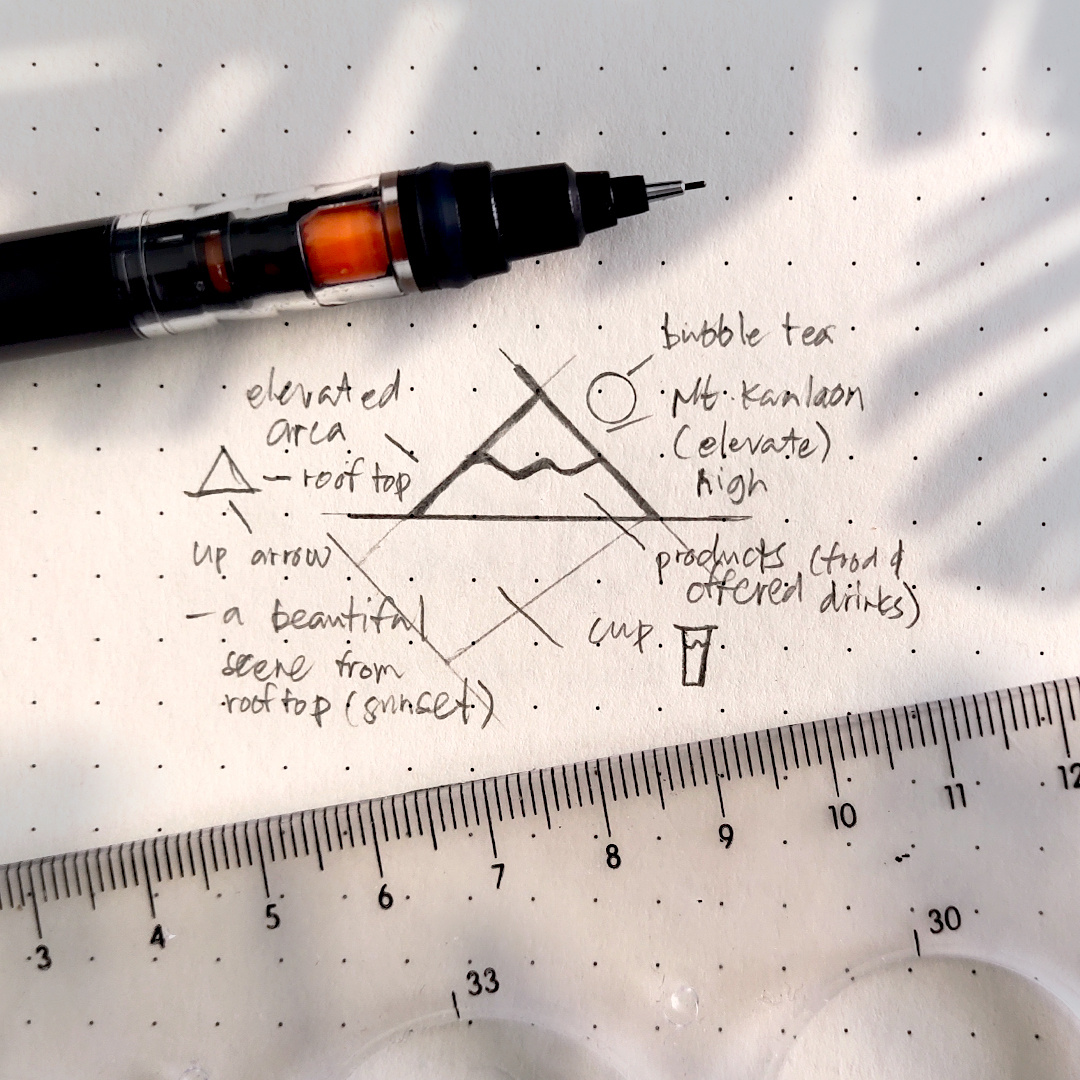 bubble tea
elevated
area
Mt. Kanlaon
(elevate)
high
— rooftop
up arrow
products (food &
offered drinks)
— a beautiful
scene from
rooftop (sunset)
cup
3 4 5 6 7 8 9 10 11 12
33
30